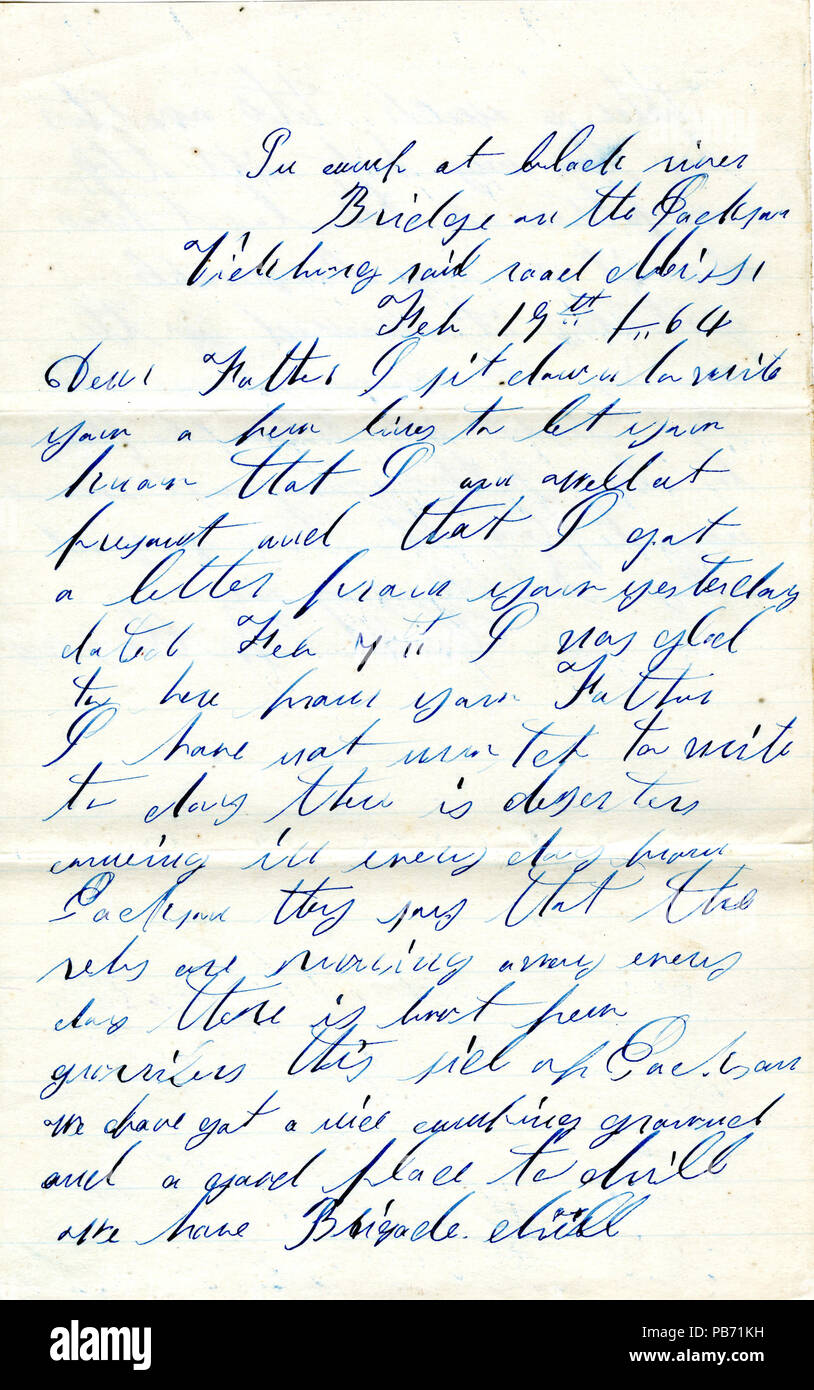 In camp at black river
Bridge on the Jackson
Vicksburg rail road Miss
Feb 19th /..64
Dear Father I sit down to write
you a few lines to let you
know that I am well at
present and that I got
a letter from you yesterday
dated Feb 7th I was glad
to here from you Father
I have not much to write
to day there is deserters
comeing in every day from
Jackson they say that the
rebs are runing away every
day there is but few
this side of Jackson
we have got a nice camping ground
and a good place to drill
we have Brigade drill
alamy
Image ID: PB71KH
www.alamy.com